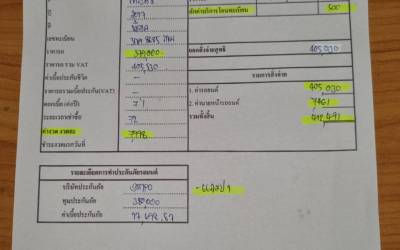 2017
หักค่าบริการโอนทะเบียน 500
เลขทะเบียน
ยอดสั่งจ่ายสุทธิ 405,030
ราคารถ 379,000
ราคารถ รวม VAT 405,530
ค่าเบี้ยประกันชีวิต –
รายการสั่งจ่าย
1. ค่ารถยนต์ 405,030
2. ค่านายหน้ารถยนต์ 7461
รวมทั้งสิ้น 412,491
ระยะเวลาเช่าซื้อ 72
ค่างวด งวดละ 7,998
ชำระงวดแรกวันที่
รายละเอียดการทำประกันภัยรถยนต์
บริษัทประกันภัย
ทุนประกันภัย 380,000
ค่าเบี้ยประกันภัย 17,698.87